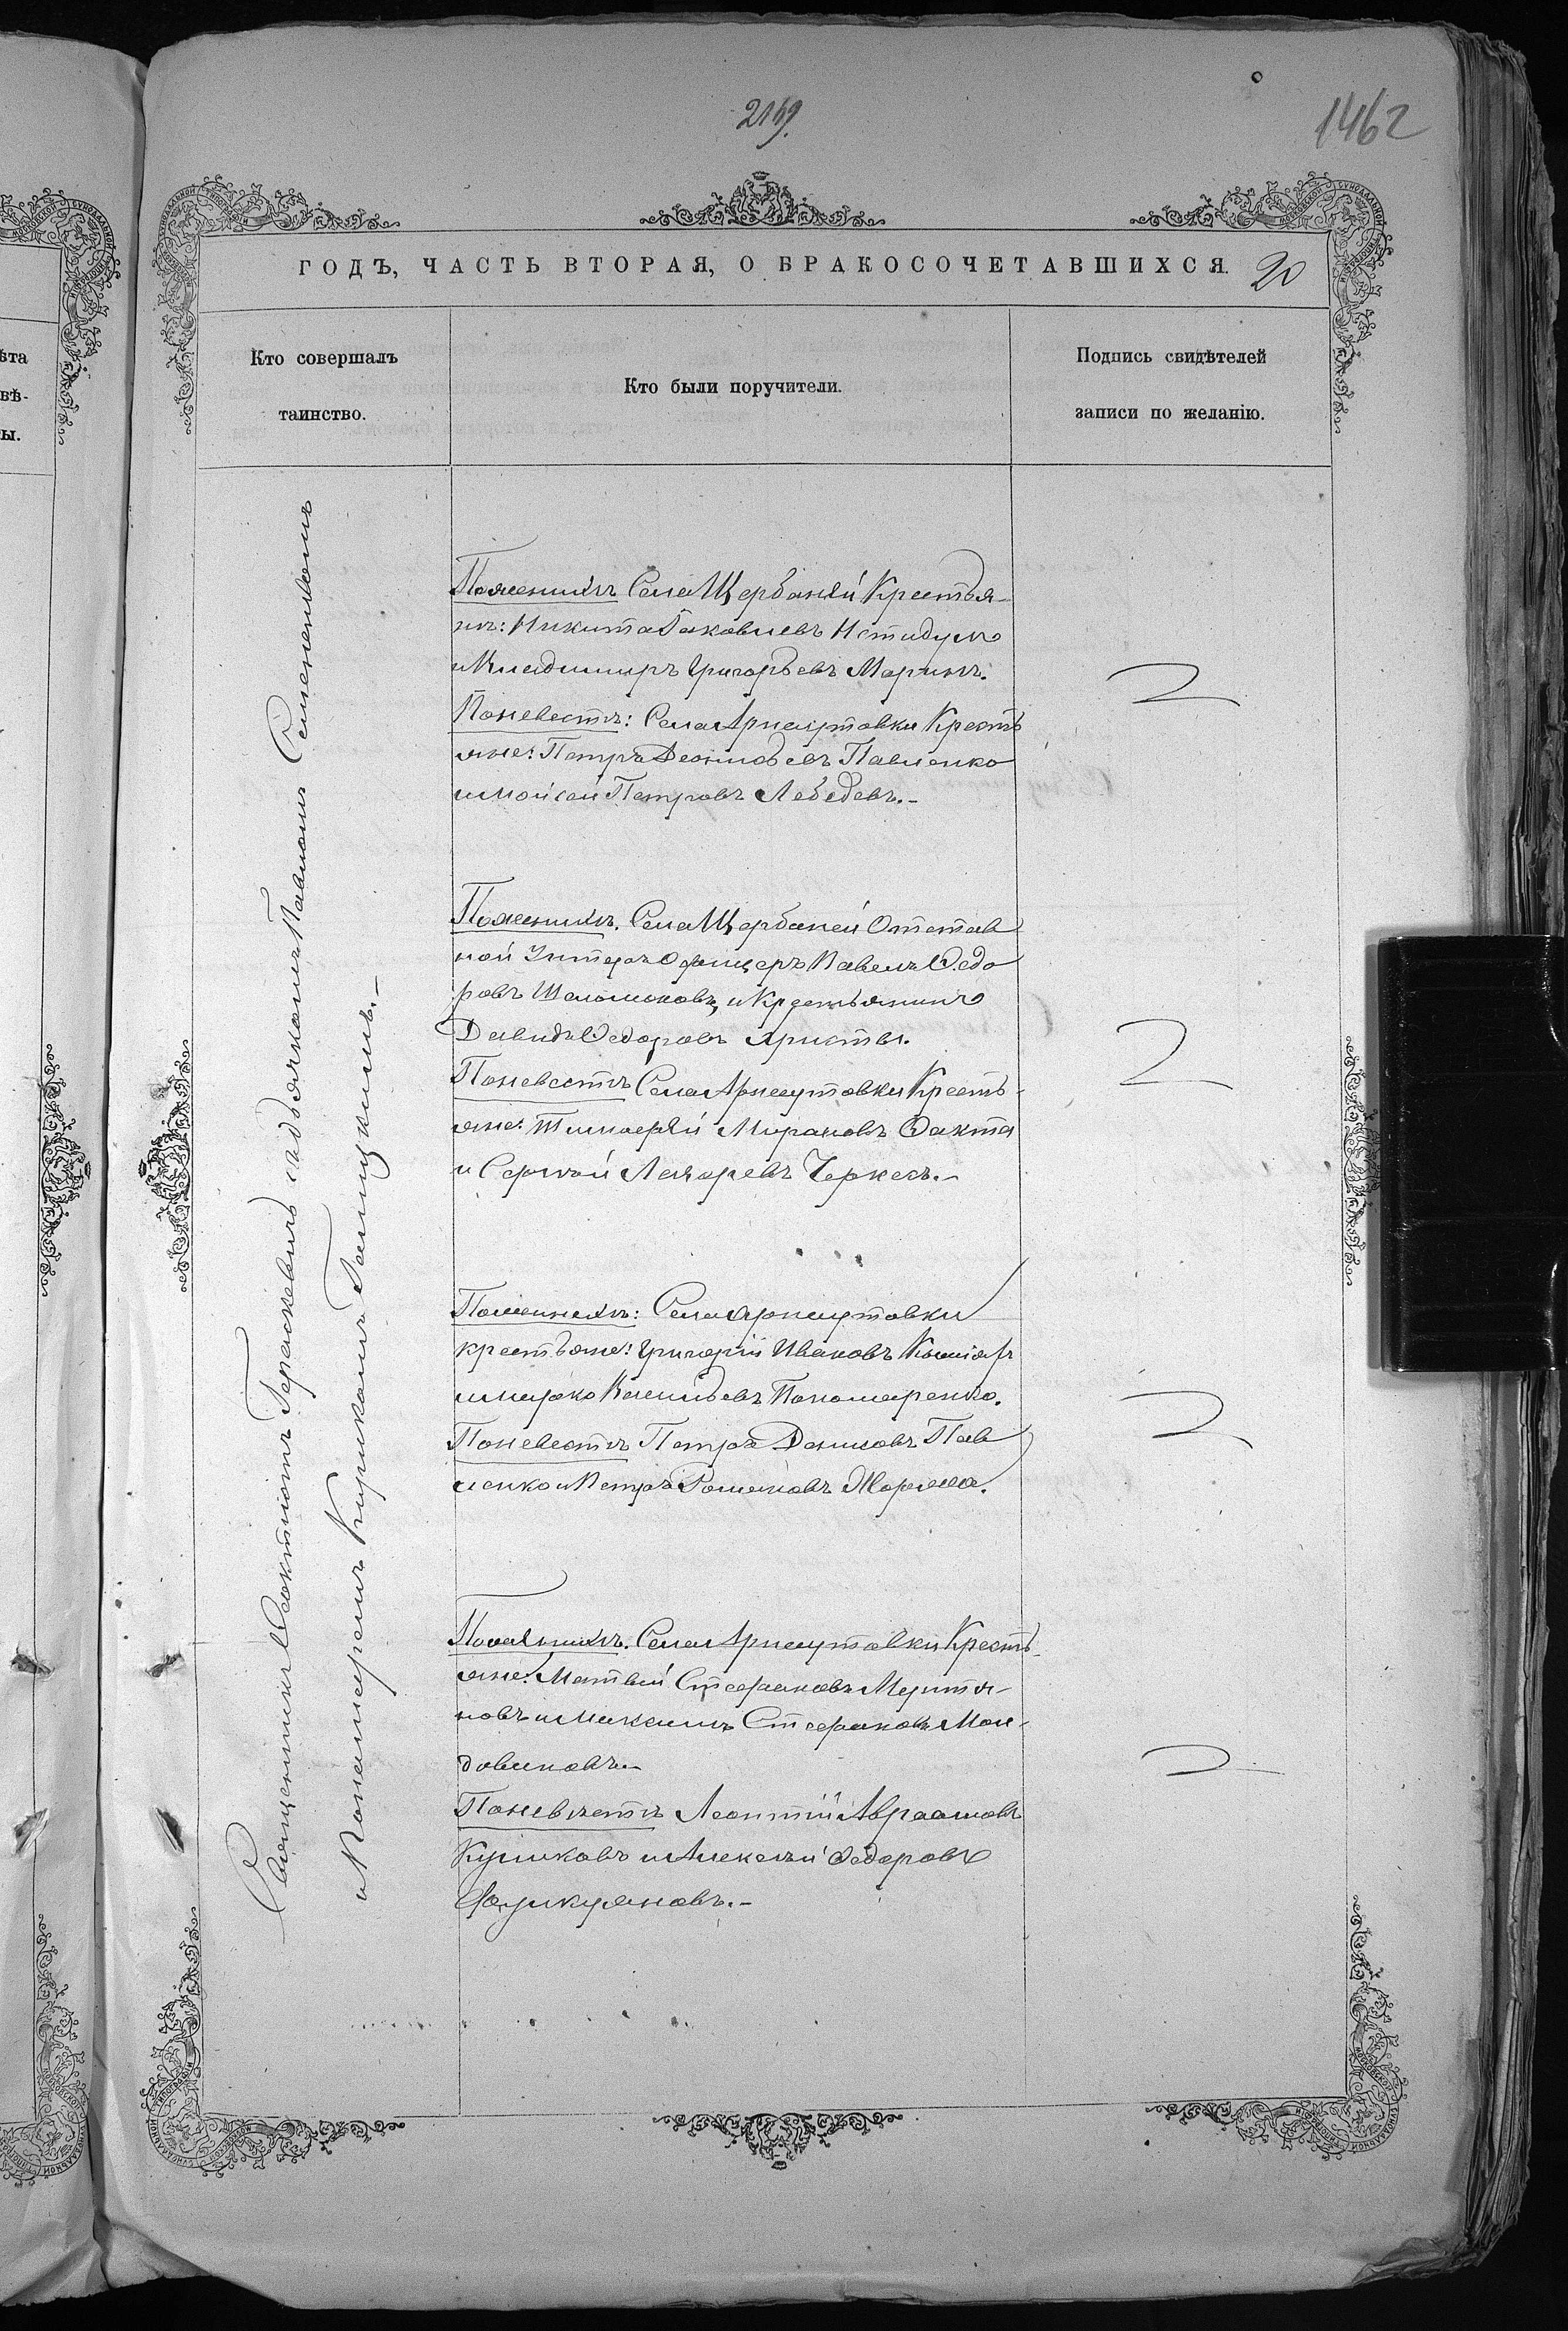 2169.
1462
ГОДЪ, ЧАСТЬ ВТОРАЯ, О БРАКОСОЧЕТАВШИХСЯ.
20
Кто совершалъ
таинство.
Кто были поручители.
Подпись свидѣтелей
записи по желанію.
Священникъ Ѳеоктистъ Гераскевичъ съ дьячкомъ Павломъ Семеновымъ
и Пономаремъ Кириломъ Галицкимъ.-
По женихѣ Села Щербаней Крестья-
не: Никита Яковлевъ
и Владимиръ Григорьевъ Маринъ.
По невестѣ: Села Арнаутовки Кресть
яне: Петръ Леонтьевъ Павленко
и Мойсей Петровъ Лебедевъ.-
По женихѣ. Села Щербаней Отстав
ной Унтеръ Офицеръ Павелъ Ѳедо
ровъ и Крестьянинъ
Давидъ Ѳедоровъ
По невестѣ Села Арнаутовки Кресть-
яне: Тимофѣй Мироновъ
и Сергѣй Лазаревъ Черкесъ.-
По женихѣ: Села Арнаутовки
крестьяне: Григорій Ивановъ
и Марко Васильевъ Пономаренко.
По невестѣ Петръ Денисовъ Пав
ленко и Петръ Романовъ
По женихѣ. Села Арнаутовки Кресть-
яне: Матвей Стефановъ
новъ и Максимъ Стефановъ Мол-
довановъ.-
По невѣстѣ Леонтій Авраамовъ
Куликовъ и Алексѣй Ѳедоровъ